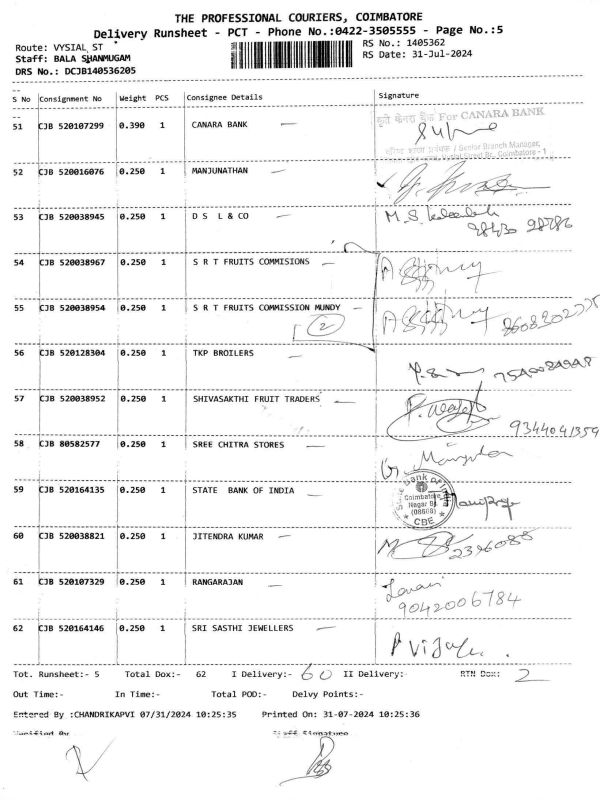 THE PROFESSIONAL COURIERS, COIMBATORE
Delivery Runsheet - PCT - Phone No.:0422-3505555 - Page No.:5
Route: VYSIAL ST
RS No.: 1405362
Staff: BALA SHANMUGAM
RS Date: 31-Jul-2024
DRS No.: DCJB140536205
S No Consignment No Weight PCS Consignee Details Signature
51 CJB 520107299 0.390 1 CANARA BANK
For CANARA BANK
Senior Branch Manager,
Coimbatore - 1
52 CJB 520016076 0.250 1 MANJUNATHAN
53 CJB 520038945 0.250 1 D S L & CO M.S.
98430 98786
54 CJB 520038967 0.250 1 S R T FRUITS COMMISIONS
55 CJB 520038954 0.250 1 S R T FRUITS COMMISSION MUNDY
2
56 CJB 520128304 0.250 1 TKP BROILERS
57 CJB 520038952 0.250 1 SHIVASAKTHI FRUIT TRADERS
9344041359
58 CJB 80582577 0.250 1 SREE CHITRA STORES
59 CJB 520164135 0.250 1 STATE BANK OF INDIA
State Bank of India
Coimbatore
Nagar Br.
CBE
60 CJB 520038821 0.250 1 JITENDRA KUMAR 2396088
61 CJB 520107329 0.250 1 RANGARAJAN
9042006784
62 CJB 520164146 0.250 1 SRI SASTHI JEWELLERS
Tot. Runsheet:- 5 Total Dox:- 62 I Delivery:- 60 II Delivery:- RTN Dox: 2
Out Time:- In Time:- Total POD:- Delvy Points:-
Entered By :CHANDRIKAPVI 07/31/2024 10:25:35 Printed On: 31-07-2024 10:25:36
Verified By Staff Signature